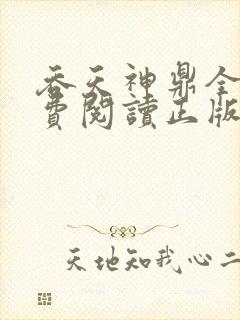 吞天神鼎全
費閱讀正版
天地知我心二